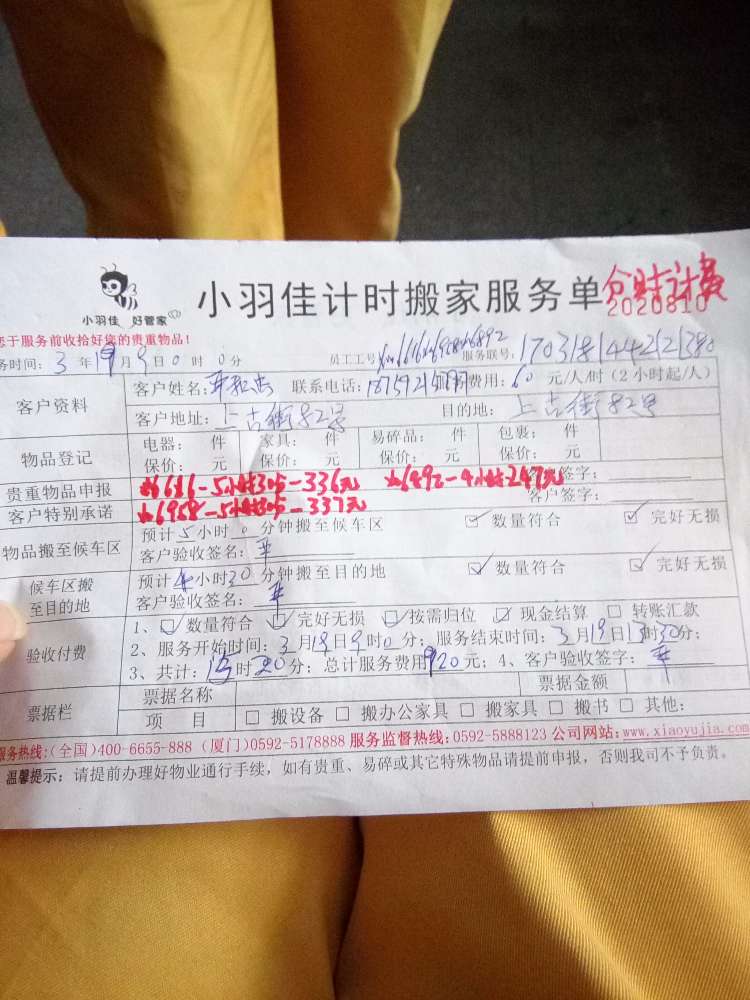 小羽佳 好管家
小羽佳计时搬家服务单 分时计费
2020810
您于服务前收拾好您的贵重物品！
务时间：3年19月9日0时0分 员工工号 服务联号：
客户资料 客户姓名： 联系电话： 费用：60元/人/时（2小时起/人）
客户地址：上古街82号 目的地：上古街82号
物品登记 电器： 件 家具： 件 易碎品： 件 包裹： 件
保价： 元 保价： 元 保价： 元 保价： 元
贵重物品申报 6616-5小时30分-336元 6892-4小时247元 客户签字：
客户特别承诺 6958-5小时30分-337元 客户签字：
物品搬至候车区 预计5小时0分钟搬至候车区 数量符合 完好无损
客户验收签名：
候车区搬至目的地 预计4小时30分钟搬至目的地 数量符合 完好无损
客户验收签名：
验收付费 1、数量符合 完好无损 按需归位 现金结算 转账汇款
2、服务开始时间：3月19日9时0分；服务结束时间：3月19日13时30分；
3、共计：15时30分；总计服务费用920元；4、客户验收签字：
票据栏 票据名称 票据金额
项 目 搬设备 搬办公家具 搬家具 搬书 其他：
服务热线：(全国)400-6655-888 (厦门)0592-5178888 服务监督热线：0592-5888123 公司网站：www.xiaoyujia.com
温馨提示：请提前办理好物业通行手续，如有贵重、易碎或其它特殊物品请提前申报，否则我司不予负责。